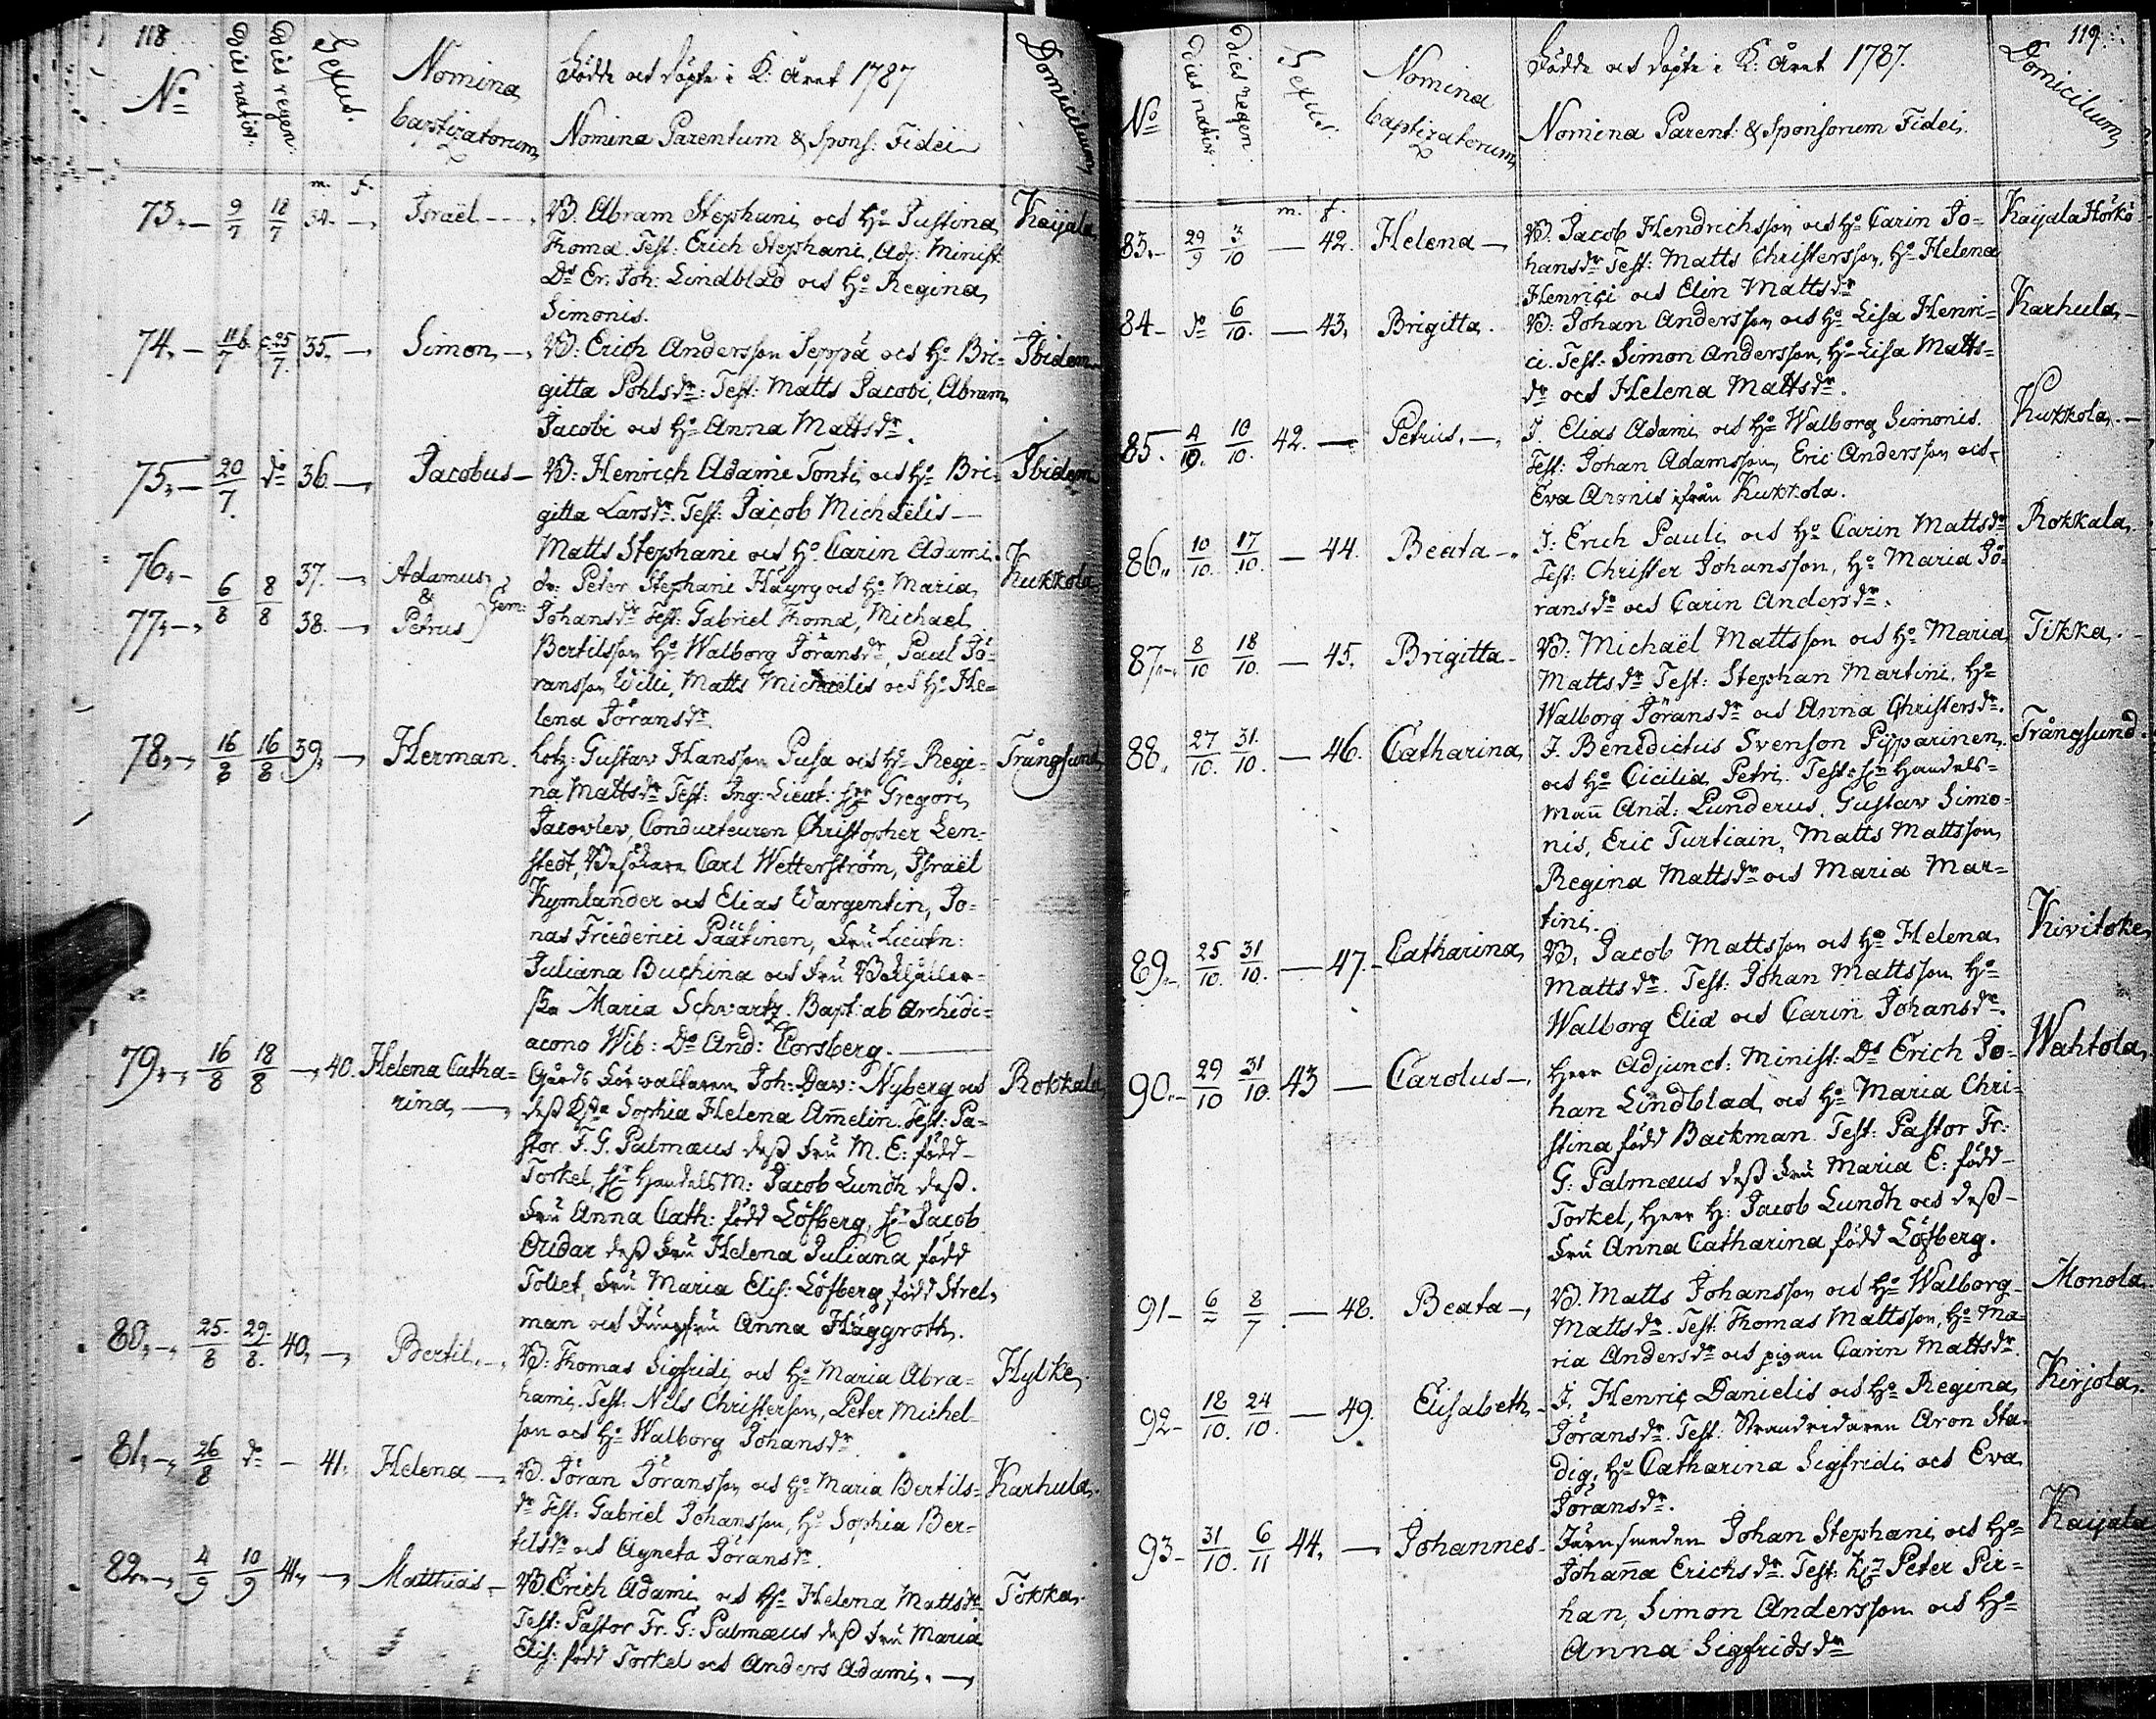 118
No
dies nativ:
dies regen:
Sexus.
m. f.
Nomina
baptizatorum
Födde och döpte i K: Året 1787
Nomina Parentum & Spons: Fidei
Domicilium
73. 9/7 18/7 34. Israël
B. Abram Stephani och Ho Justina
Thomæ. Test: Erich Stephani, Adj: Minist:
Ds Er: Joh: Lindblad och Ho Regina
Simonis.
Kaijala
74. 25/7 35. Simon
B: Erich Andersson Seppä och Ho Bri-
gitta Pohlsdr: Test: Matts Jacobi, Abram
Jacobi och Ho Anna Mattsdr.
Ibidem
75. 20/7. do 36. Jacobus
B: Henrich Adami Tonti och Ho Bri-
gitta Larsdr. Test: Jacob Michaëlis
Matts Stephani och Ho Carin Adami.
Ibidem
76. 37. Adamus
6/8 8/8 & Gem:
77. 38. Petrus
dr: Peter Stephani Häyry och Ho Maria
Johansdr Test: Gabriel Thomæ, Michael
Bertilsson Ho Walborg Jöransdr, Paul Jö-
ransson Willi, Matts Michaelis och Ho He-
lena Jöransdr
Kukkola
78. 16/8 16/8. 39. Herman.
Lotz: Gustav Hansson Pusa och Ho Regi-
na Mattsdr Test: Ing: Lieut: Herr Gregori
Jacovlev, Conducteuren Christopher Len-
stedt, Besökare Carl Wetterström, Israël
Kymlander och Elias Wargentin, Jo-
nas Friederici Päätinen, Fru Lieutn:
Juliana Buchina och Fru
ska Maria Schvartz. Bapt: ab Archidi-
acono Wib: Do And: Corsberg.
Trångsund
79. 16/8 18/8 40. Helena Catha-
rina
Gårds Förvaltaren Joh: Dav: Nyberg och
dess Sophia Helena Amelin. Test: Pa-
stor F. G. Palmæus dess Fru M. E: född
Torkel, Hr Handels M: Jacob Lundh dess.
Fru Anna Cath: född Löfberg, Hr Jacob
Cridar dess Fru Helena Juliana född
Tollet, Fru Maria Elis: Löfberg född Strel-
man och Jungfru Anna Häggroth.
Rokkala
80. 25/8 29/8. 40. Bertil.
B: Thomas Sigfridi och Ho Maria Abra-
hami. Test: Nils Christerson, Peter Michel-
son och Ho Walborg Johansdr
Hylke
81. 26/8 do 41. Helena
B. Jöran Jöransson och Ho Maria Bertils-
dr Test: Gabriel Johansson, Ho Sophia Ber-
tilsdr och Agneta Jöransdr.
Karhula.
82. 4/9 10/9 41. Matthias
B. Erich Adami och Ho Helena Mattsdr
Test: Pastor Fr. G: Palmæus dess Fru Maria
Elis: född Torkel och Anders Adami.
Tikka.
119
No
dies nativ:
dies regen
Sexus.
m. f.
Nomina
baptizatorum
Födde och döpte i K: Året 1787.
Nomina Parent: & Sponsorum Fidei.
Domicilium
83. 29/9 3/10 42. Helena
B. Jacob Hendrichsson och Ho Carin Jo-
hansdr Test: Matts Christersson, Ho Helena
Henrici och Elin Mattsdr
Kaijala
84 do 6/10. 43. Brigitta.
B: Johan Andersson och Ho Lisa Henri-
ci. Test: Simon Andersson, Ho Lisa Matts-
dr och Helena Mattsdr.
Karhula
85. 4/10. 10/10. 42. Petrus.
I. Elias Adami och Ho Walborg Simonis.
Test: Johan Adamsson, Eric Andersson och
Eva Aronis ifrån Kukkola.
Kukkola.
86. 10/10. 17/10. 44. Beata
I: Erich Pauli och Ho Carin Mattsdr
Test: Christer Johansson, Ho Maria Jö-
ransdr och Carin Andersdr.
Rokkala.
87. 8/10 18/10. 45. Brigitta
B: Michaël Mattsson och Ho Maria
Mattsdr Test: Stephan Martini, Ho
Walborg Jöransdr och Anna Christersdr.
Tikka.
88. 27/10. 31./10. 46. Catharina
I. Benedictus Svenson Pipparinen.
och Ho Cicilia Petri. Test: Hr Handels-
man And: Lunderus, Gustav Simo-
nis, Eric Turtiain, Matts Mattsson,
Regina Mattsdr och Maria Mar-
tini.
Trångsund.
89. 25/10. 31/10. 47. Catharina
B. Jacob Mattsson och Ho Helena
Mattsdr. Test: Johan Mattsson Ho
Walborg Eliæ och Carin Johansdr.
Kivitoke
90. 29/10 31/10. 43 Carolus
Herr Adjunct: Minist: Ds Erich Jo-
han Lindblad, och Ho Maria Chri-
stina född Backman. Test: Pastor Fr:
G: Palmæus dess Fru Maria E: född
Torkel, Herr H: Jacob Lundh och dess
Fru Anna Catharina född Löfberg.
Wahtola
91 6 8/7 48. Beata
B. Matts Johansson och Ho Walborg
Mattsdr. Test: Thomas Mattsson, Ho Ma-
ria Andersdr och pigan Carin Mattsdr.
Monola
92 18/10. 24/10. 49. Elisabeth
I. Henric Danielis och Ho Regina
Jöransdr. Test: Strandridaren Aron Sta-
dig, Ho Catharina Sigfridi och Eva
Jöransdr.
Kirjola.
93 31/10. 6/11 44. Johannes
Järnsmeden Johan Stephani och Ho
Johanna Erichsdr. Test: Peter Pir-
han, Simon Andersson och Ho
Anna Sigfridsdr
Kaijala